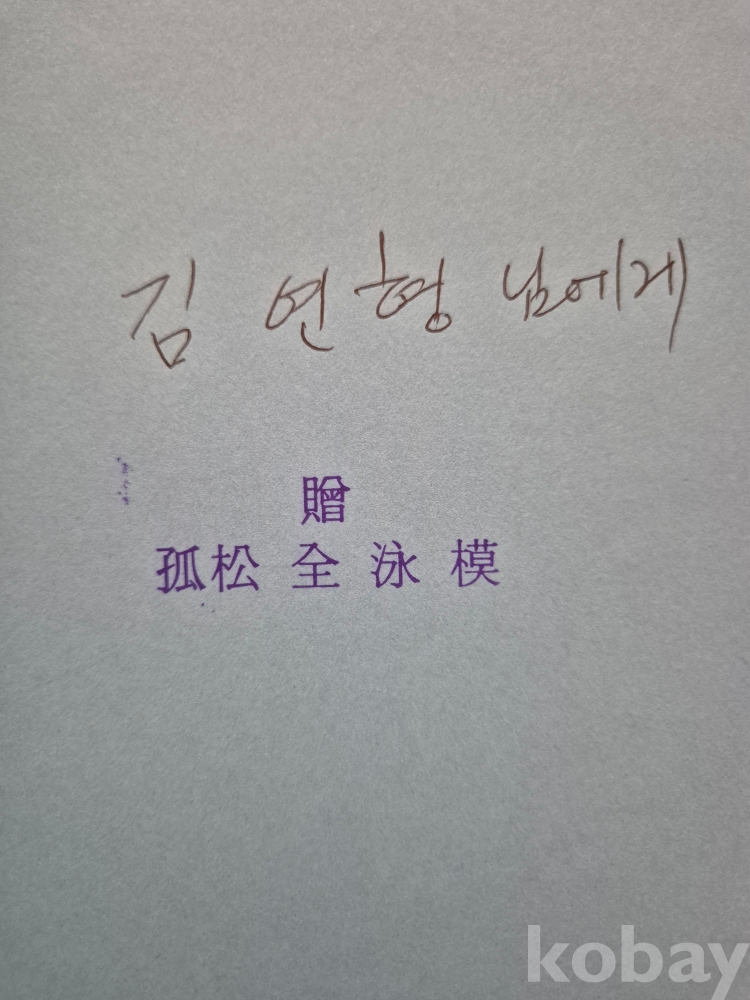 김 연형 님에게
贈
孤松 全 泳 模
kobay